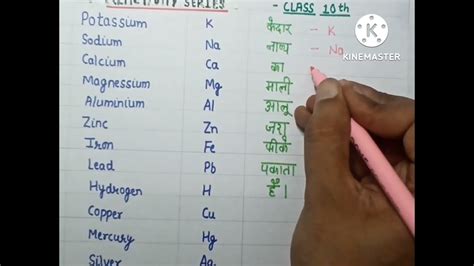 REACTIVITY SERIES - CLASS 10th
Potassium K केदार - K
Sodium Na नाथ - Na
Calcium Ca का
Magnesium Mg माली
Aluminium Al आलू
Zinc Zn जरा
Iron Fe फीके
Lead Pb पकाता
Hydrogen H है।
Copper Cu
Mercury Hg
Silver Ag
KINEMASTER